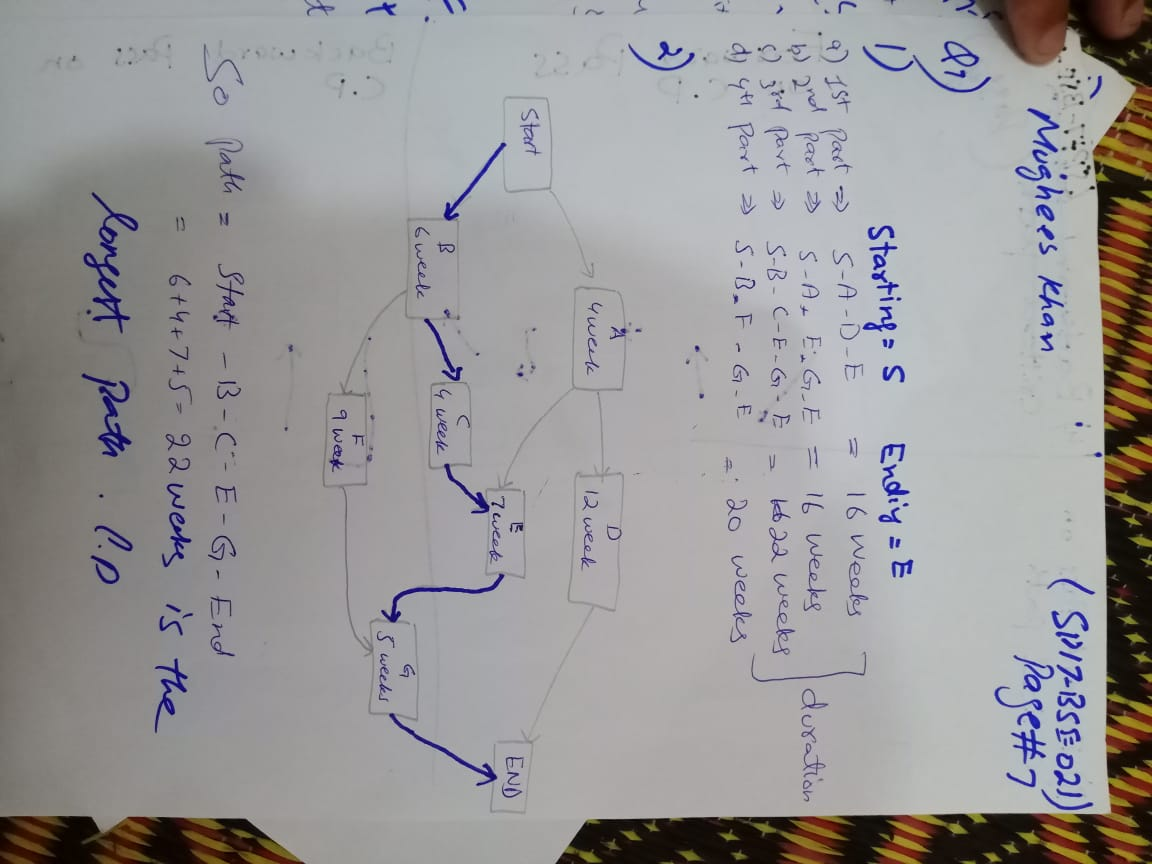 Mughees Khan
(SP17-BSE-021)
Page# 7
Q1)
1)
Starting = S Endiy = E
a) 1st Part ⇒ S-A-D-E = 16 weeks
b) 2nd Part ⇒ S-A-E-G-E = 16 weeks
c) 3rd Part ⇒ S-B-C-E-G-E = 22 weeks
d) 4th Part ⇒ S-B-F-G-E = 20 weeks
duration
2)
Start
A
4 week
D
12 week
B
6 week
C
4 week
E
7 week
F
9 week
G
5 weeks
END
So Path = Start - B - C - E - G - End
= 6+4+7+5 = 22 weeks is the
longest path.